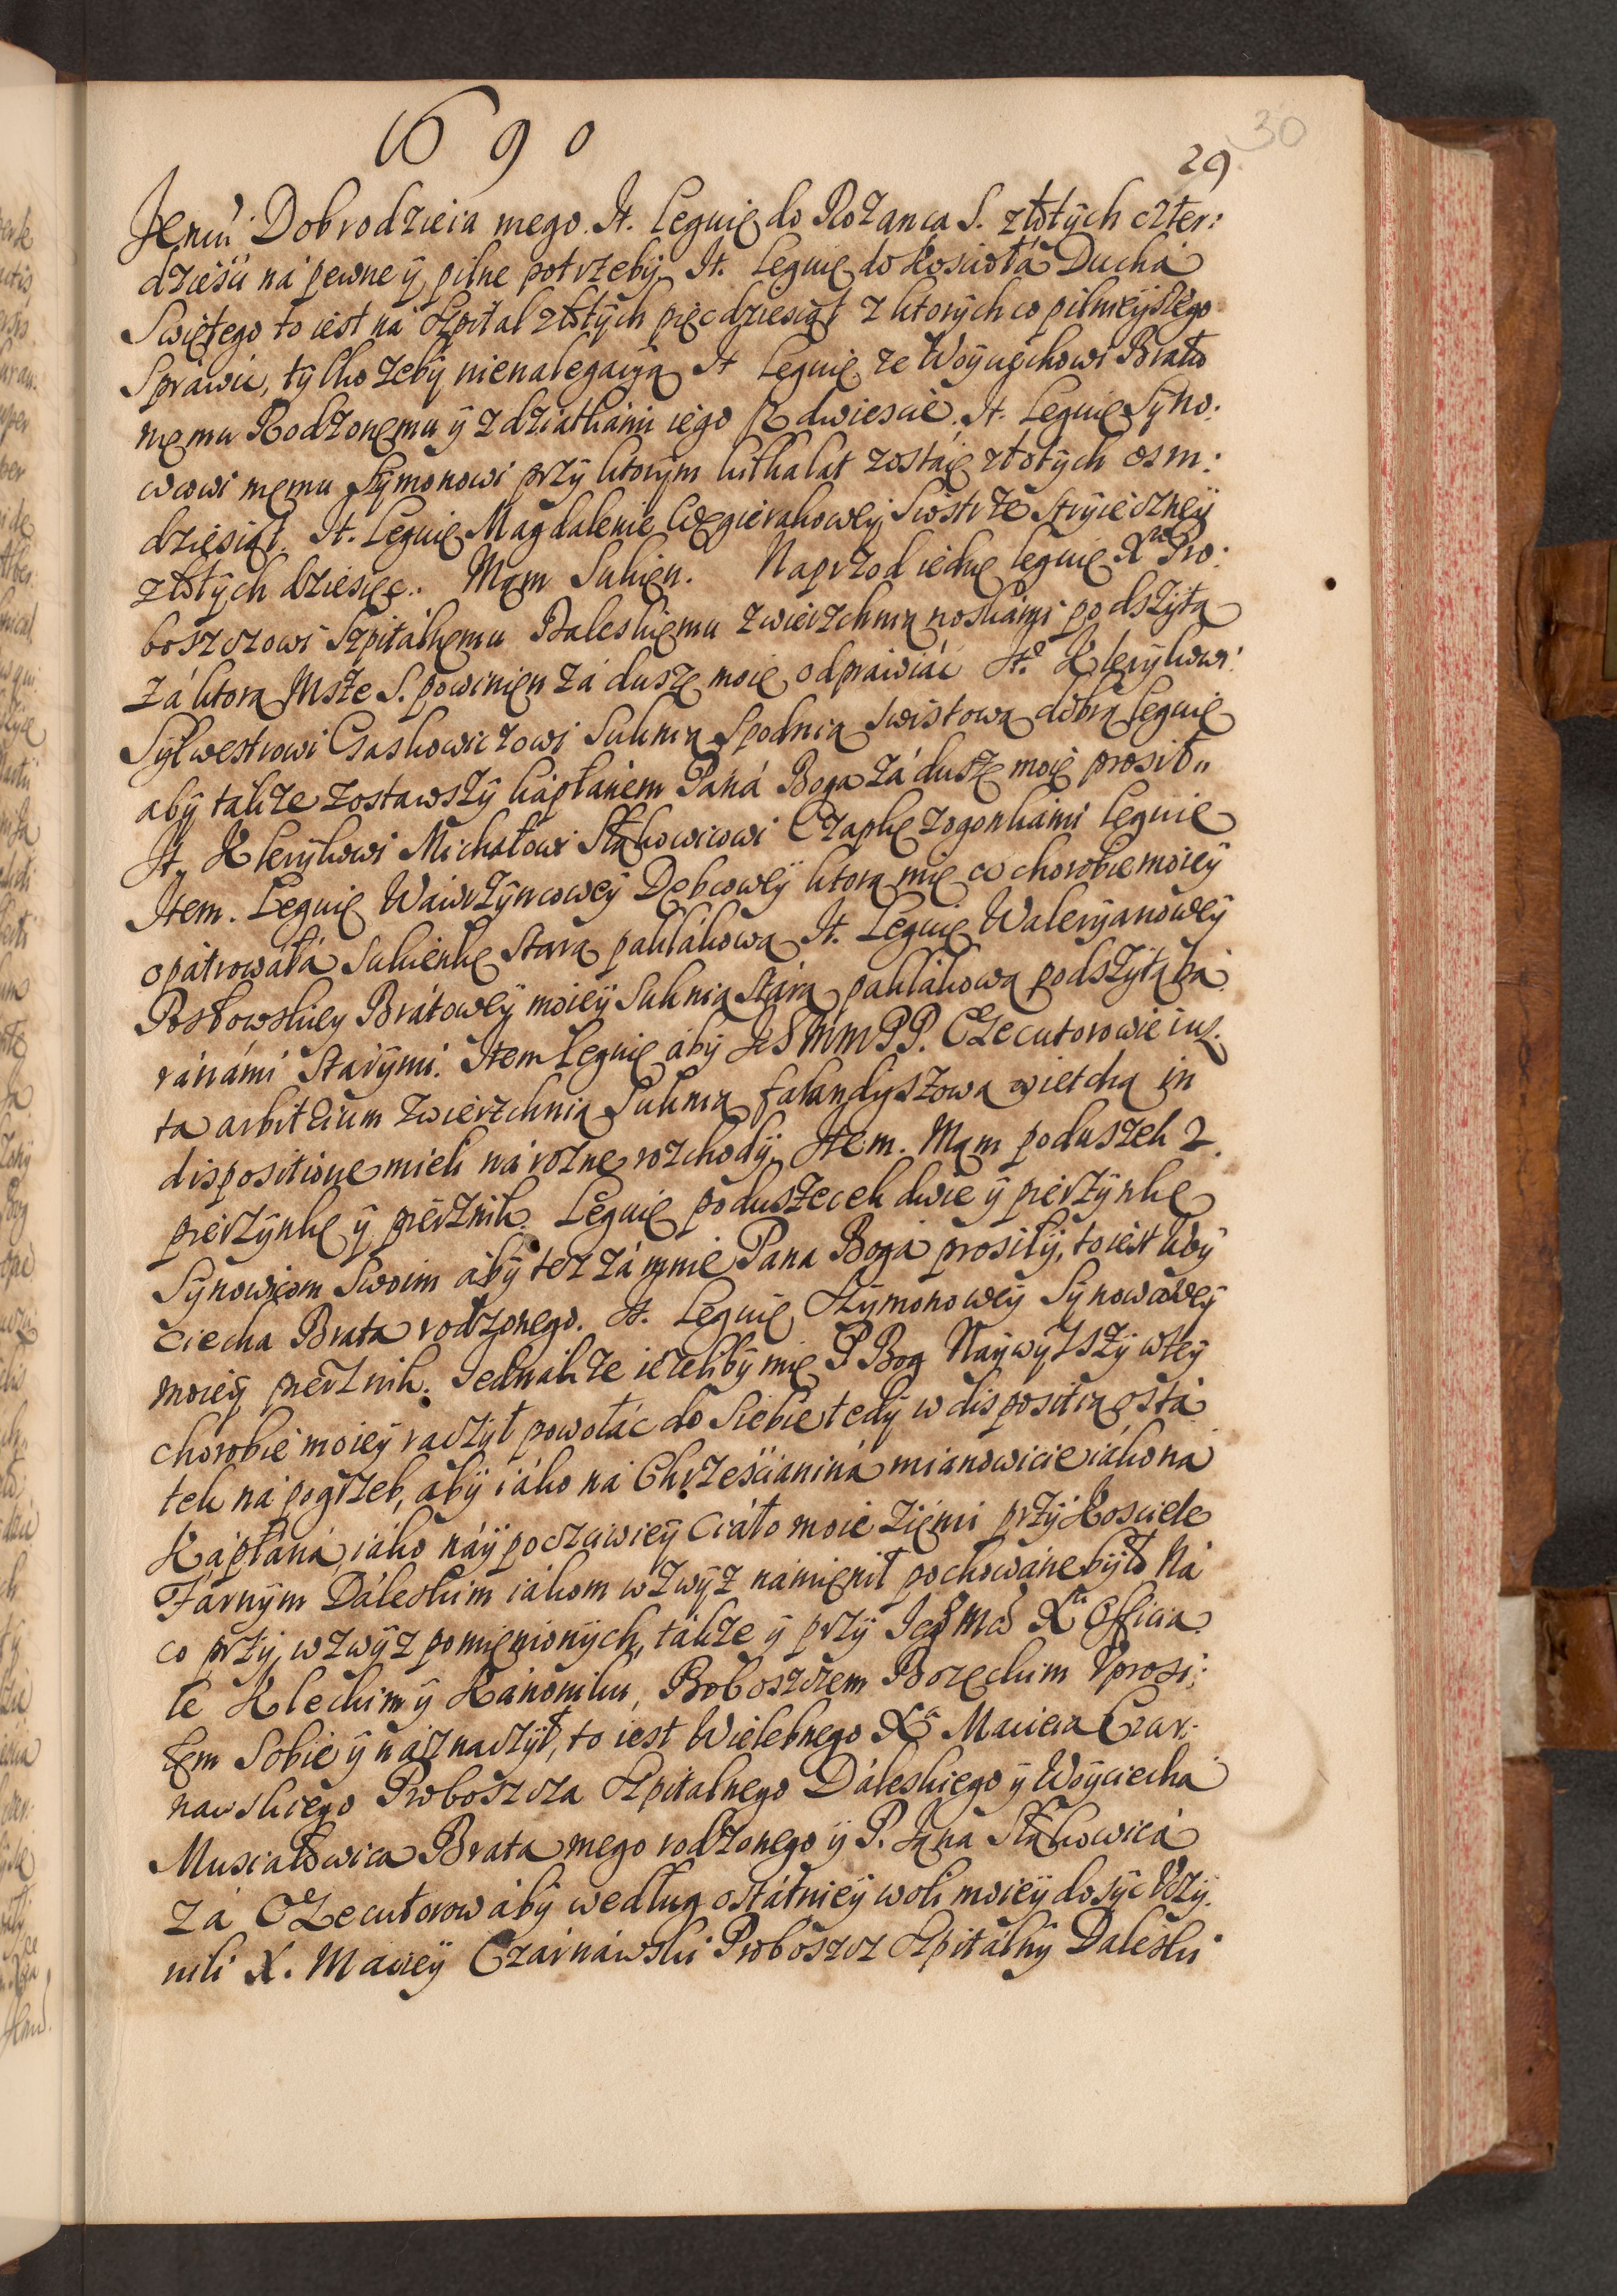 1690
30
29
Jemu Dobrodzieia mego. It. Leguię do Rożanca S. złotych czter:
dzieści ná pewne ÿ pilne potrzebÿ It. Leguię do Kosciołá Duchá
Swiętego to iest ná Szpital złotÿch pięcdziesiąt z ktorÿch co pilnieÿszego
Spráwić, tÿlko zebÿ nienalegaiÿą It Leguię ze Woÿciechowi Bratu
memu Rodzonemu ÿ z dziatkámi iego fl dwiescie. It. Leguię Sÿno:
wcowi memu Sÿmonowi przÿ ktorÿm kilkalat zostáię złotÿch osm:
dziesiąt. It. Leguię Magdalenie Węgierakoweÿ Siostrze Strÿieczneÿ
złotÿch dziesięc. Mąm Sukien. Naprzod iednę leguię Xdzu Pro:
boszczowi Szpitálnemu Daleskiemu zwierzchnią noskámi podszÿtą
zá ktorą Msze S. powinien zá duszę moię odpráwiác It. Klerÿkowi
Sÿlwestrowi Czaskowiczowi Suknią Spodnią swistową dobrą leguię
abÿ tákze zostawszÿ kápłanem Paná Boga zá duszę moię prosił
It. Klerÿkowi Michałowi Stąkowicowi Czapkę zogonkámi leguię
Item. Leguię Wáwrzÿncoweÿ Dębcoweÿ ktora mię w chorobie moieÿ
opátrowáłá Sukienkę Starą paklákową It. Leguię Walerÿanoweÿ
Posłowskieÿ Brátoweÿ moieÿ Suknią Stárą paklákową podszÿtą bá:
ránámi Starÿmi. Item Leguię ábÿ Ich MM PP. Exekutorowie iux:
ta arbitrium zwierzchnią Suknią falandyszową wietchą in
dispositione mieli ná rozne rozchodÿ. Item. Mąm poduszek 2.
pierzÿnkę ÿ pierznik. Leguię poduszecek dwie ÿ pierzÿnkę
Sÿnowicom Swoim ábÿ tez zá mnie Pana Bogá prosiłÿ, to iest Woÿ
ciecha Brata rodzonego. It. Leguię Szÿmonoweÿ Sÿnowcoweÿ
moieÿ pierznik. Jednakze iezelibÿ mię P Bog Naÿwÿzszÿ wteÿ
chorobie moieÿ raczÿł powołác do Siebie tedÿ w dispositią ostá
tek ná pogrzeb, abÿ iáko ná Chrześcianiná mianowicie iáko ná
Kápłaná, iáko náÿpoczciwieÿ Ciáło moie ziemi przÿ Kosciele
Fárnÿm Dáleskim iákom wzwÿz námienił pochowáne bÿło Ná
co przÿ wzwÿz pomienionÿch, tákze ÿ przÿ Ieg Mci Xu Officia:
le Kleckim ÿ Kánoniku, Proboszczem Borzęckim Uprosi:
łem Sobie ÿ náznaczÿł, to iest Wielebnego Xa Macieia Czar:
nawskiego Proboszcza Szpitalnego Dáleskiego ÿ Woÿciecha
Musiałowica Brata mego rodzonego ÿ P. Jana Stąkowicá
zá Exekutorow ábÿ według ostátnieÿ woli moieÿ dosÿc Uczÿ:
nili X. Macieÿ Czárnáwski Proboszcz Szpitálnÿ Daleski